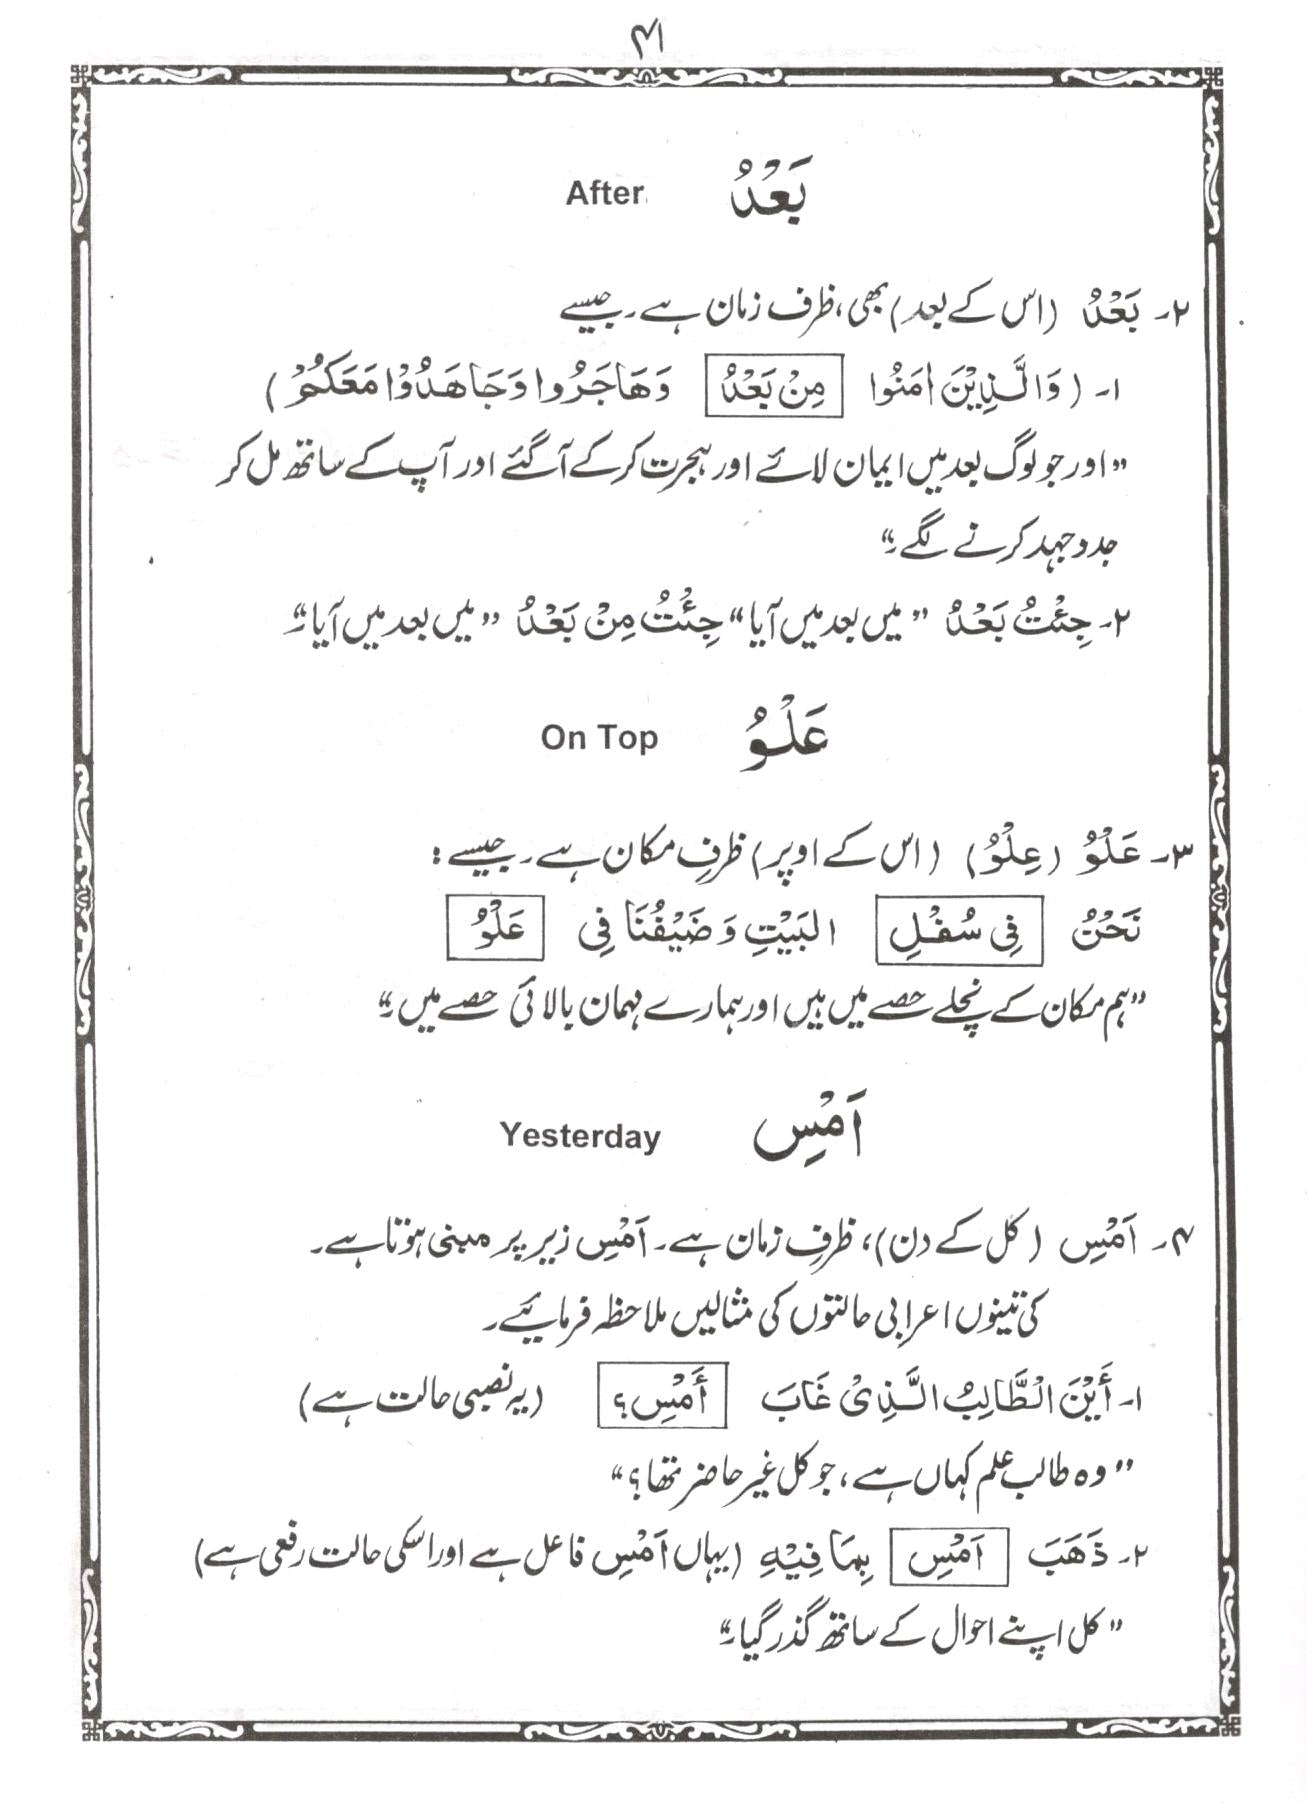 ۴۱
بَعْدُ After
۲۔ بَعْدُ (اس کے بعد) بھی، ظرف زمان ہے۔ جیسے
۱۔ (وَالَّذِيْنَ اٰمَنُوا مِنْ بَعْدُ وَهَاجَرُوا وَجَاهَدُوْا مَعَكُمْ)
”اور جو لوگ بعد میں ایمان لائے اور ہجرت کر کے آ گئے اور آپ کے ساتھ مل کر
جدوجہد کرنے لگے۔“
۲۔ جِئْتُ بَعْدُ ”میں بعد میں آیا“ جِئْتُ مِنْ بَعْدُ ”میں بعد میں آیا۔“
عَلْوُ On Top
۳۔ عَلْوُ (عِلْوُ) (اس کے اوپر) ظرفِ مکان ہے۔ جیسے :
نَحْنُ فِي سُفْلِ البَيْتِ وَ ضَيْفُنَا فِي عَلْوُ
”ہم مکان کے نچلے حصے میں ہیں اور ہمارے مہمان بالائی حصے میں۔“
اَمْسِ Yesterday
۴۔ اَمْسِ (کل کے دن)، ظرفِ زمان ہے۔ اَمْسِ زیر پر مبنی ہوتا ہے۔
کی تینوں اعرابی حالتوں کی مثالیں ملاحظہ فرمائیے۔
۱۔ أَيْنَ الْطَّالِبُ الَّذِيْ غَابَ أَمْسِ؟ (یہ نصبی حالت ہے)
”وہ طالب علم کہاں ہے، جو کل غیر حاضر تھا؟“
۲۔ ذَهَبَ اَمْسِ بِمَا فِيْهِ (یہاں اَمْسِ فاعل ہے اور اسکی حالت رفعی ہے)
”کل اپنے احوال کے ساتھ گذر گیا۔“